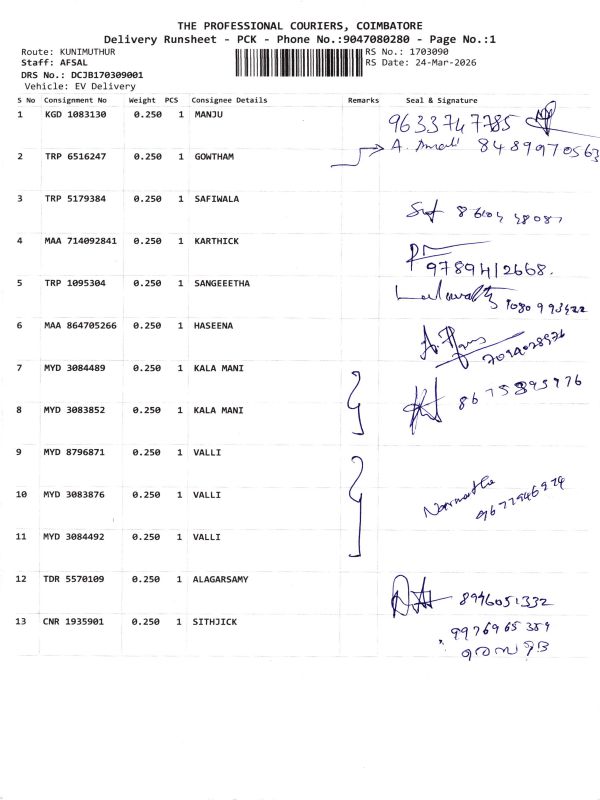 THE PROFESSIONAL COURIERS, COIMBATORE
Delivery Runsheet - PCK - Phone No.:9047080280 - Page No.:1
Route: KUNIMUTHUR RS No.: 1703090
Staff: AFSAL RS Date: 24-Mar-2026
DRS No.: DCJB170309001
Vehicle: EV Delivery
S No Consignment No Weight PCS Consignee Details Remarks Seal & Signature
1 KGD 1083130 0.250 1 MANJU 9633747785
2 TRP 6516247 0.250 1 GOWTHAM 8489970563
3 TRP 5179384 0.250 1 SAFIWALA
4 MAA 714092841 0.250 1 KARTHICK 9789412668.
5 TRP 1095304 0.250 1 SANGEEETHA
6 MAA 864705266 0.250 1 HASEENA
7 MYD 3084489 0.250 1 KALA MANI
8 MYD 3083852 0.250 1 KALA MANI
9 MYD 8796871 0.250 1 VALLI
10 MYD 3083876 0.250 1 VALLI
11 MYD 3084492 0.250 1 VALLI
12 TDR 5570109 0.250 1 ALAGARSAMY 8946051332
13 CNR 1935901 0.250 1 SITHJICK